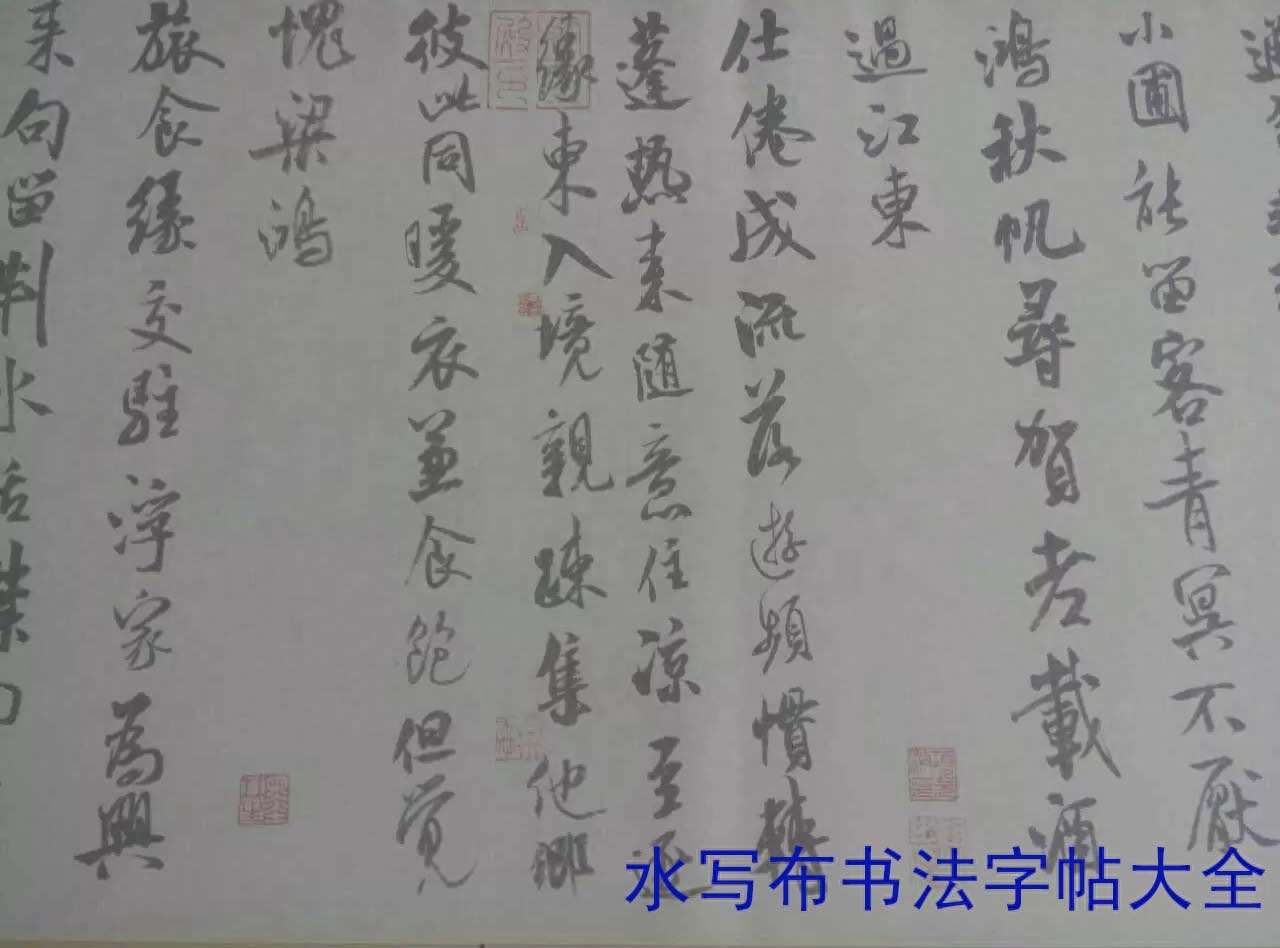 通
小圃能留客青冥不厭
鴻秋帆尋賀老載酒
過江東
仕倦成流落遊頻慣轉
蓬熱来隨意住涼至逐
緣東入境親疎集他鄉
彼此同暖衣兼食飽但覺
愧梁鴻
旅食緣交駐浮家為興
来句留荆水話襟向
水写布书法字帖大全